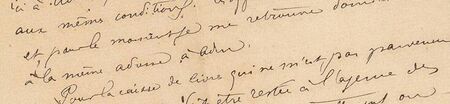 ici à
aux mêmes conditions.
et, pour le moment je me retrouve dans
à la même adresse à
Pour la caisse de livres qui ne m'est pas parvenue
être restée à l'agence des